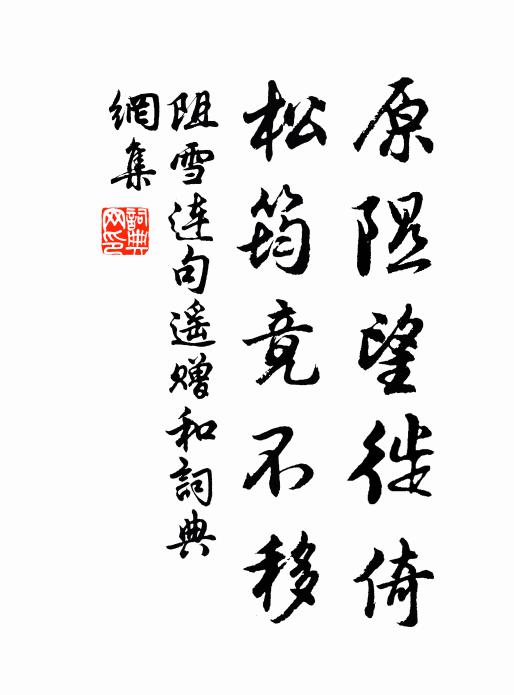 原隰望徙倚
松筠竟不移
阻雪连句遥赠和詞典
網集
詞典网印